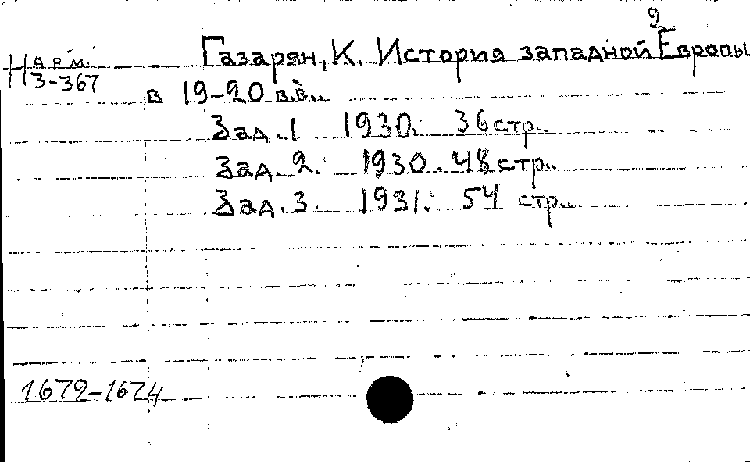 9
Нарм. Газарян, К. История западной Европы
3-367
в 19-20 в.в.
Зад. 1 1930. 36 стр.
Зад. 2. 1930. 48 стр.
Зад. 3. 1931. 54 стр.
1672-1674